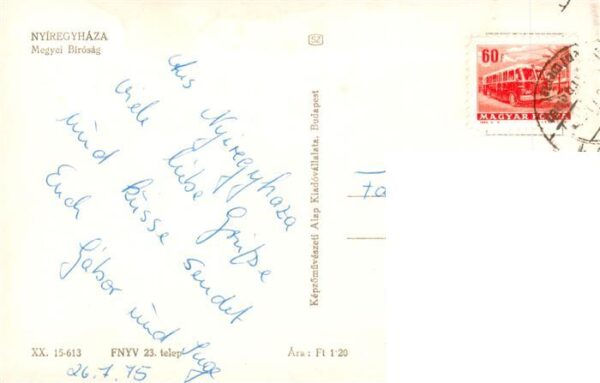 NYÍREGYHÁZA
Megyei Bíróság
Aus Nyiregyhaza
viele liebe Grüsse
und küsse sendet
Euch Gábor und Inge
26.7.75
XX. 15-613 FNYV 23. telep Ára: Ft 1·20
Képzőművészeti Alap Kiadóvállalata, Budapest
60f
MAGYAR POSTA
Fa